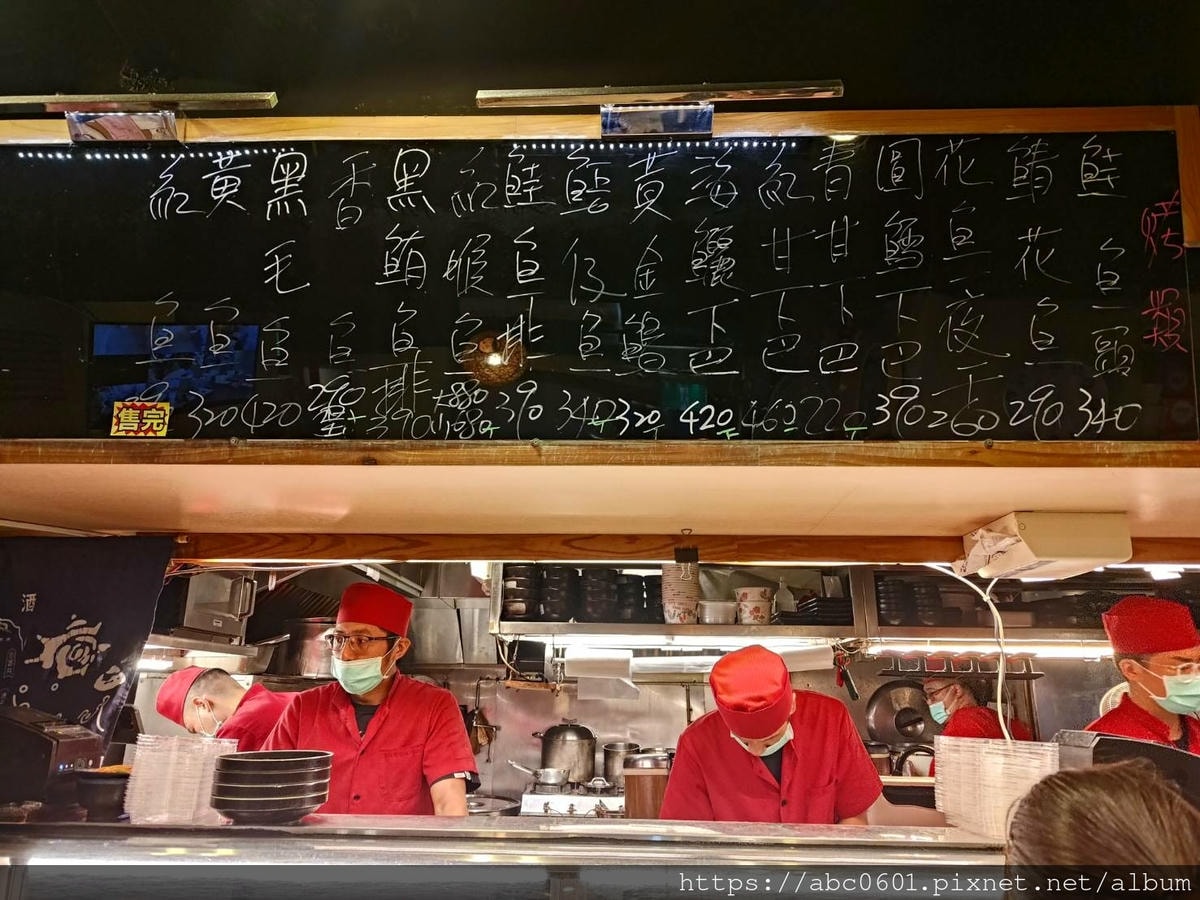 烤
鮭魚頭 340
鯖花魚 290
花魚一夜干 260
圓鱈下巴 390
青甘下巴 220
紅甘下巴 460
海鱺下巴 420
黃金鯧 320
仔魚 340
鮭魚排 390
紅喉魚 880 1080
黑鮪魚排 390
香魚 290
黑毛魚 420
黃魚 320
紅魚
售完
酒
https://abc0601.pixnet.net/album